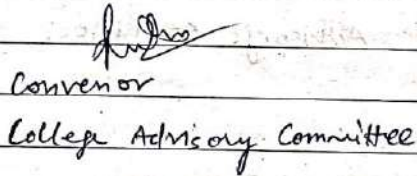 Convenor
College Advisory Committee